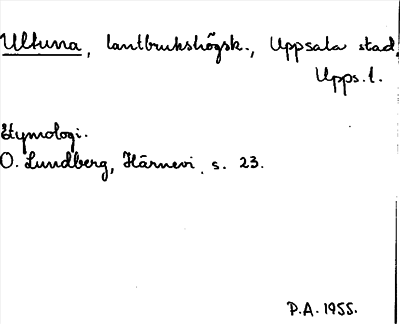 Ultuna, lantbrukshögsk., Uppsala stad,
Upps. l.
Etymologi.
O. Lundberg, Härnevi, s. 23.
P.A. 1955.